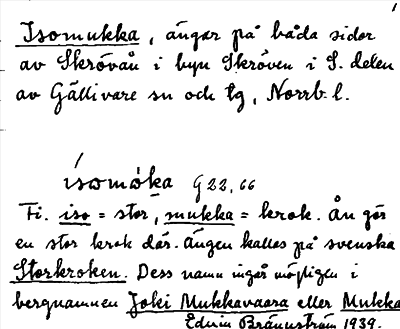 Isomukka, ängar på båda sidor
av Skrövån i byn Skröven i S. delen
av Gällivare sn och tg, Norrb. l.
ísomòka G22,66
Fi. iso = stor, mukka = krok. Ån gör
en stor krok där. Ängen kallas på svenska
Storkroken. Dess namn ingår möjligen i
bergnamnen Joki Mukkavaara eller Mukka
Edvin Brännström 1939.